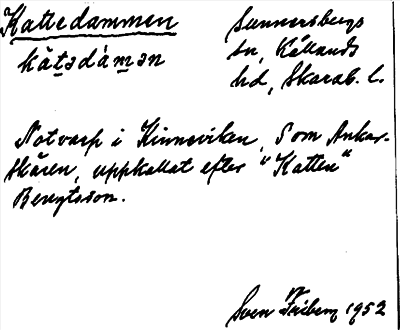 Kattedammen
kàtǝdámǝn
Sunnersbergs
sn, Kållands
hd, Skarab. l.
Notvarp i Kinneviken, S om Ankar-
skären, uppkallat efter "Katten"
Bengtsson.
Sven Friberg 1952